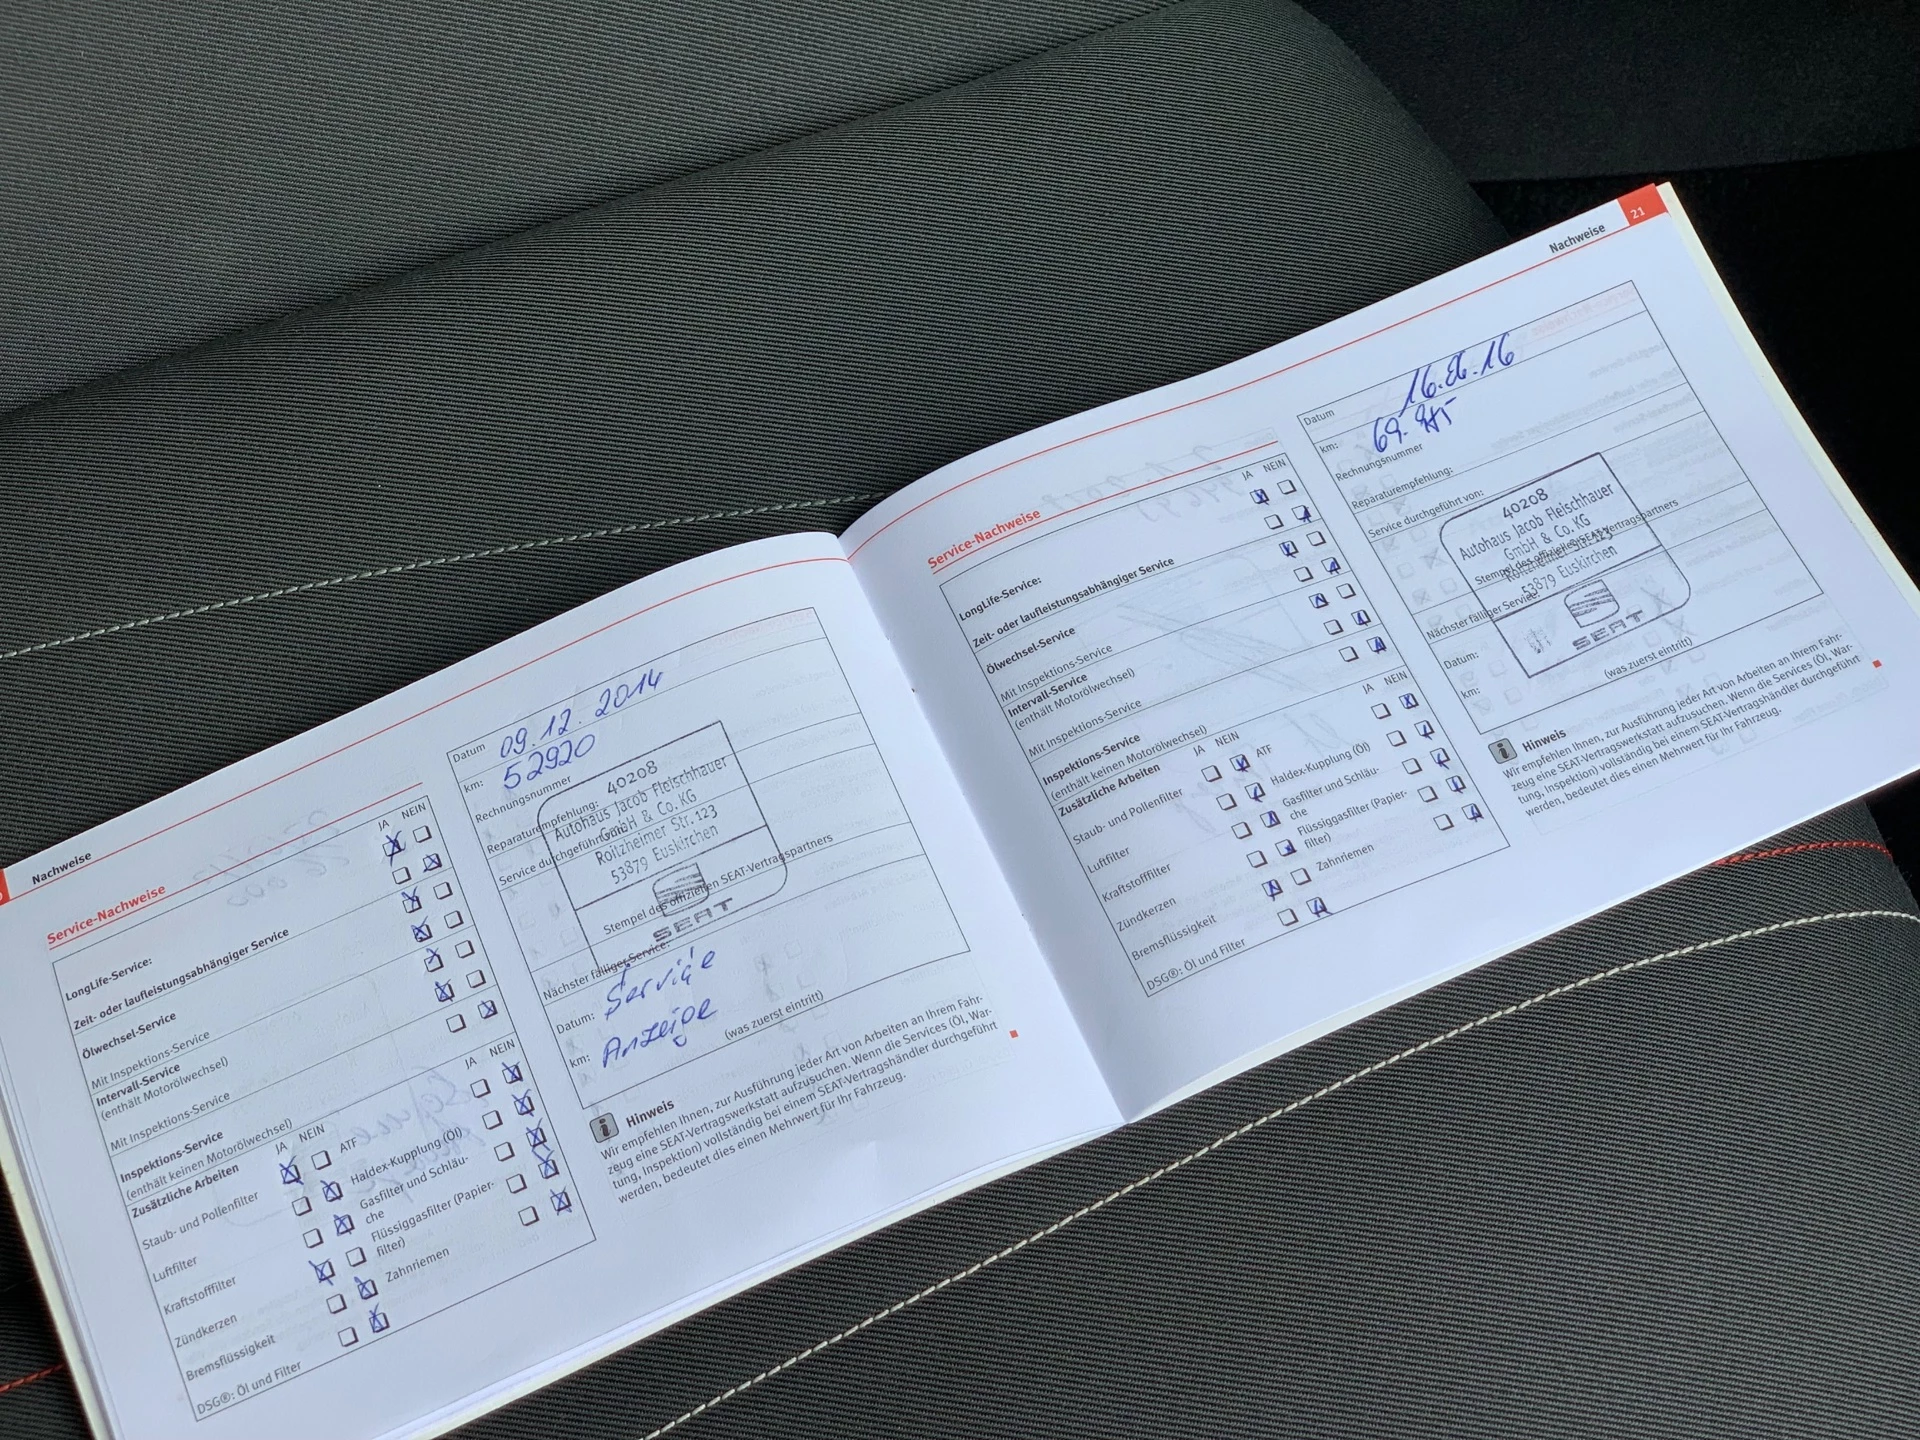 Nachweise
Service-Nachweise
JA NEIN
LongLife-Service:
Zeit- oder laufleistungsabhängiger Service
Ölwechsel-Service
Mit Inspektions-Service
Intervall-Service
(enthält Motorölwechsel)
Mit Inspektions-Service
Inspektions-Service
(enthält keinen Motorölwechsel)
Zusätzliche Arbeiten
JA NEIN
JA NEIN
Staub- und Pollenfilter
Luftfilter
Kraftstofffilter
Zündkerzen
Bremsflüssigkeit
DSG®: Öl und Filter
ATF
Haldex-Kupplung (Öl)
Gasfilter und Schläu-
che
Flüssiggasfilter (Papier-
filter)
Zahnriemen
Datum 09.12.2014
km: 52920
Rechnungsnummer
Reparaturempfehlung:
Service durchgeführt von:
40208
Autohaus Jacob Fleischhauer
GmbH & Co. KG
Roitzheimer Str. 123
53879 Euskirchen
SEAT
Stempel des offiziellen SEAT-Vertragspartners
Nächster fälliger Service:
Datum: Service
km: Anzeige
(was zuerst eintritt)
Hinweis
Wir empfehlen Ihnen, zur Ausführung jeder Art von Arbeiten an Ihrem Fahr-
zeug eine SEAT-Vertragswerkstatt aufzusuchen. Wenn die Services (Öl, War-
tung, Inspektion) vollständig bei einem SEAT-Vertragshändler durchgeführt
werden, bedeutet dies einen Mehrwert für Ihr Fahrzeug.
Nachweise 21
Service-Nachweise
JA NEIN
LongLife-Service:
Zeit- oder laufleistungsabhängiger Service
Ölwechsel-Service
Mit Inspektions-Service
Intervall-Service
(enthält Motorölwechsel)
Mit Inspektions-Service
Inspektions-Service
(enthält keinen Motorölwechsel)
Zusätzliche Arbeiten
JA NEIN
JA NEIN
Staub- und Pollenfilter
Luftfilter
Kraftstofffilter
Zündkerzen
Bremsflüssigkeit
DSG®: Öl und Filter
ATF
Haldex-Kupplung (Öl)
Gasfilter und Schläu-
che
Flüssiggasfilter (Papier-
filter)
Zahnriemen
Datum
km:
Rechnungsnummer
Reparaturempfehlung:
Service durchgeführt von:
40208
Autohaus Jacob Fleischhauer
GmbH & Co. KG
Roitzheimer Str. 123
53879 Euskirchen
SEAT
Stempel des offiziellen SEAT-Vertragspartners
Nächster fälliger Service:
Datum:
km:
(was zuerst eintritt)
Hinweis
Wir empfehlen Ihnen, zur Ausführung jeder Art von Arbeiten an Ihrem Fahr-
zeug eine SEAT-Vertragswerkstatt aufzusuchen. Wenn die Services (Öl, War-
tung, Inspektion) vollständig bei einem SEAT-Vertragshändler durchgeführt
werden, bedeutet dies einen Mehrwert für Ihr Fahrzeug.